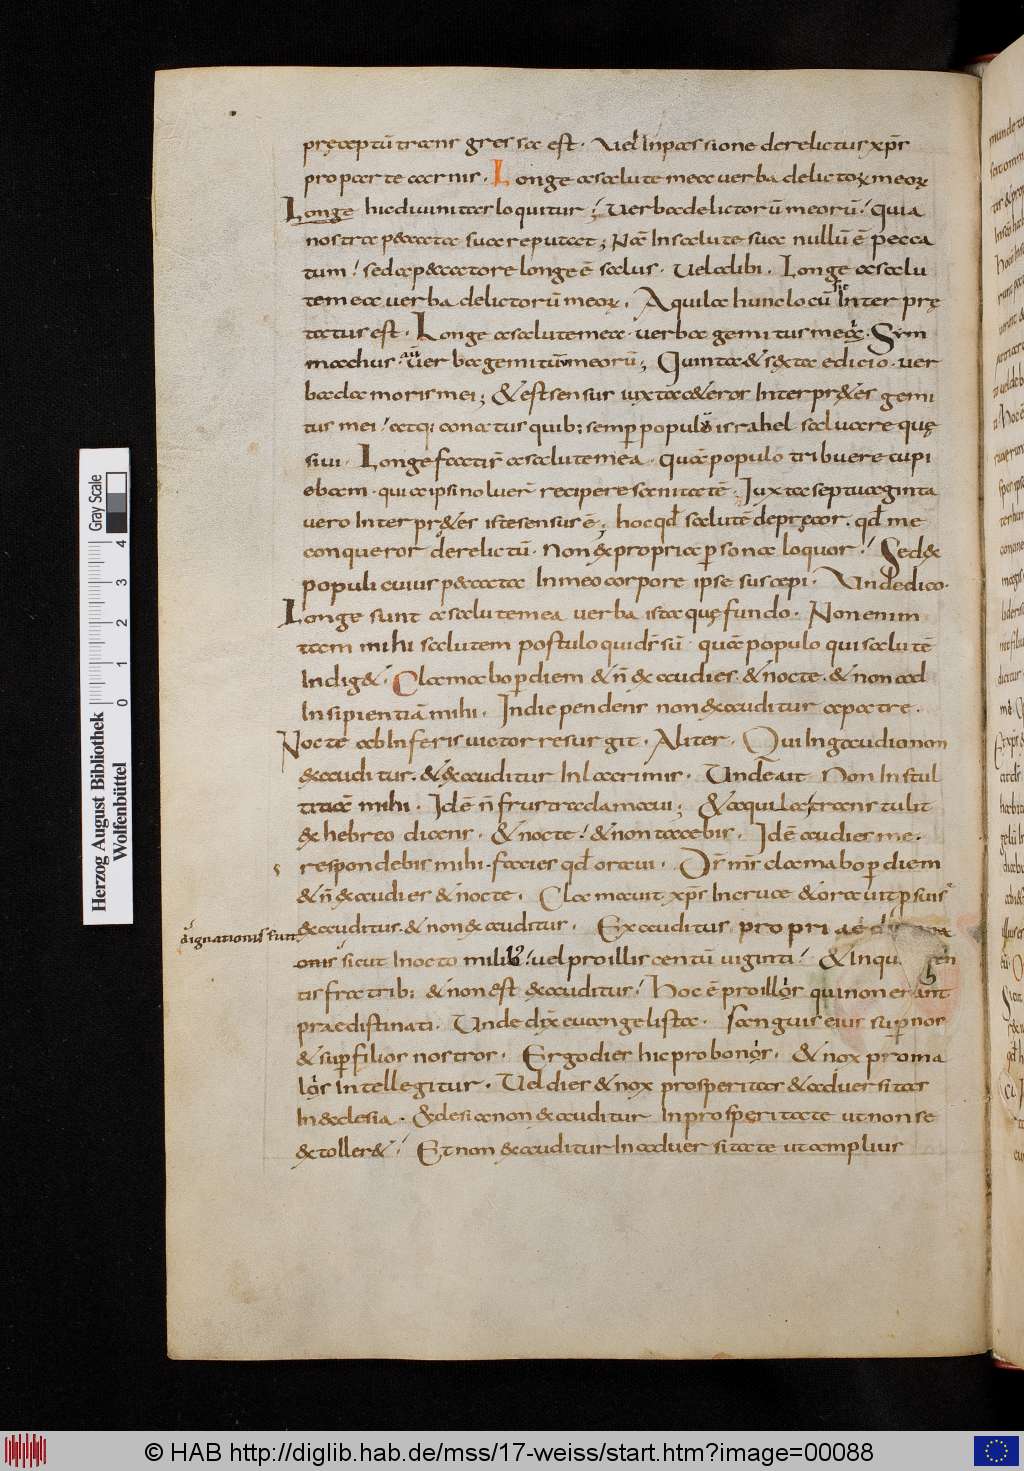 pręceptū transgressa est. Vel In passione derelictus xp̄s
pro parte carnis. Longe a salute mea verba delictoꝝ meoꝝ
Longe hic divinitas loquitur; Verba delictorū meorū; quia
nostra peccata sua reputat; Nā In salute sua nullū ē pecca
tum; sed a peccatore longe ē salus. Vel adibi. Longe a salu
te mea verba delictorū meoꝝ. Aquila hunc locū sic Inter prę
tatus est. Longe a salute mea verba gemitus mei. Sym
machus aū verba gemituum meorū; Quinta & sexta edicio. ver
ba clamoris mei; & est sensus iuxta ceteros Interpretes gemi
tus mei; atq; conatus quib; semp populū israhel salvare quę
sivi. Longe facti st̄ a salute mea. quā populo tribuere cupi
ebam. quia ipsi noluer̄ recipere sanitatē. Iuxta septuaginta
vero Interpretes iste sensus ē; hoc qd̄ salutē deprecor. qd̄ me
conqueror derelictū. Non ex propria psona loquor; Sed ex
populi cuius peccata In meo corpore ipse suscepi. Unde dico.
Longe sunt a salute mea verba ista quę fundo. Non enim
tam mihi salutem postulo qui ds̄ sū quā populo qui salutē
Indiget. Clamabo p diem & n̄ exaudies. & nocte. & non ad
Insipientiā mihi. In die pendens non exauditur a patre.
Nocte ab Inferis victor resurgit. Aliter. Qui In gaudio non
exauditur. & exauditur In lacrimis. Unde ait Non In stul
titiā mihi. Idē n̄ frustra clamavi; & aquila; transtulit
ex hebreo dicens. & nocte; & non tacebis. Idē audies me.
respondebis mihi. facies qd̄ oravi. Ds̄ ms̄ clamabo p diem
& n̄ exaudies & nocte. Clamavit xp̄s In cruce & oravit p suis
exauditur. & non exauditur. Exauditur pro
dignationis futi
onis sicut In octo milib;; vel pro illis centū viginti; & In
tis fratrib; & non est exauditur; hoc ē pro illis qui non erant
praedistinati. Unde dix̄ euangelista. Sanguis eius sup nos
& sup filios nostros. Ergo dies hic pro bonis. & nox pro ma
lis Intellegitur. Vel dies & nox prosperitas & adversitas
In ęclesia. Eclesia non exauditur In prosperitate ut non se
extolleret; Et non exauditur In adversitate ut amplius
Herzog August Bibliothek
Wolfenbüttel
Gray Scale
0 1 2 3 4
© HAB http://diglib.hab.de/mss/17-weiss/start.htm?image=00088